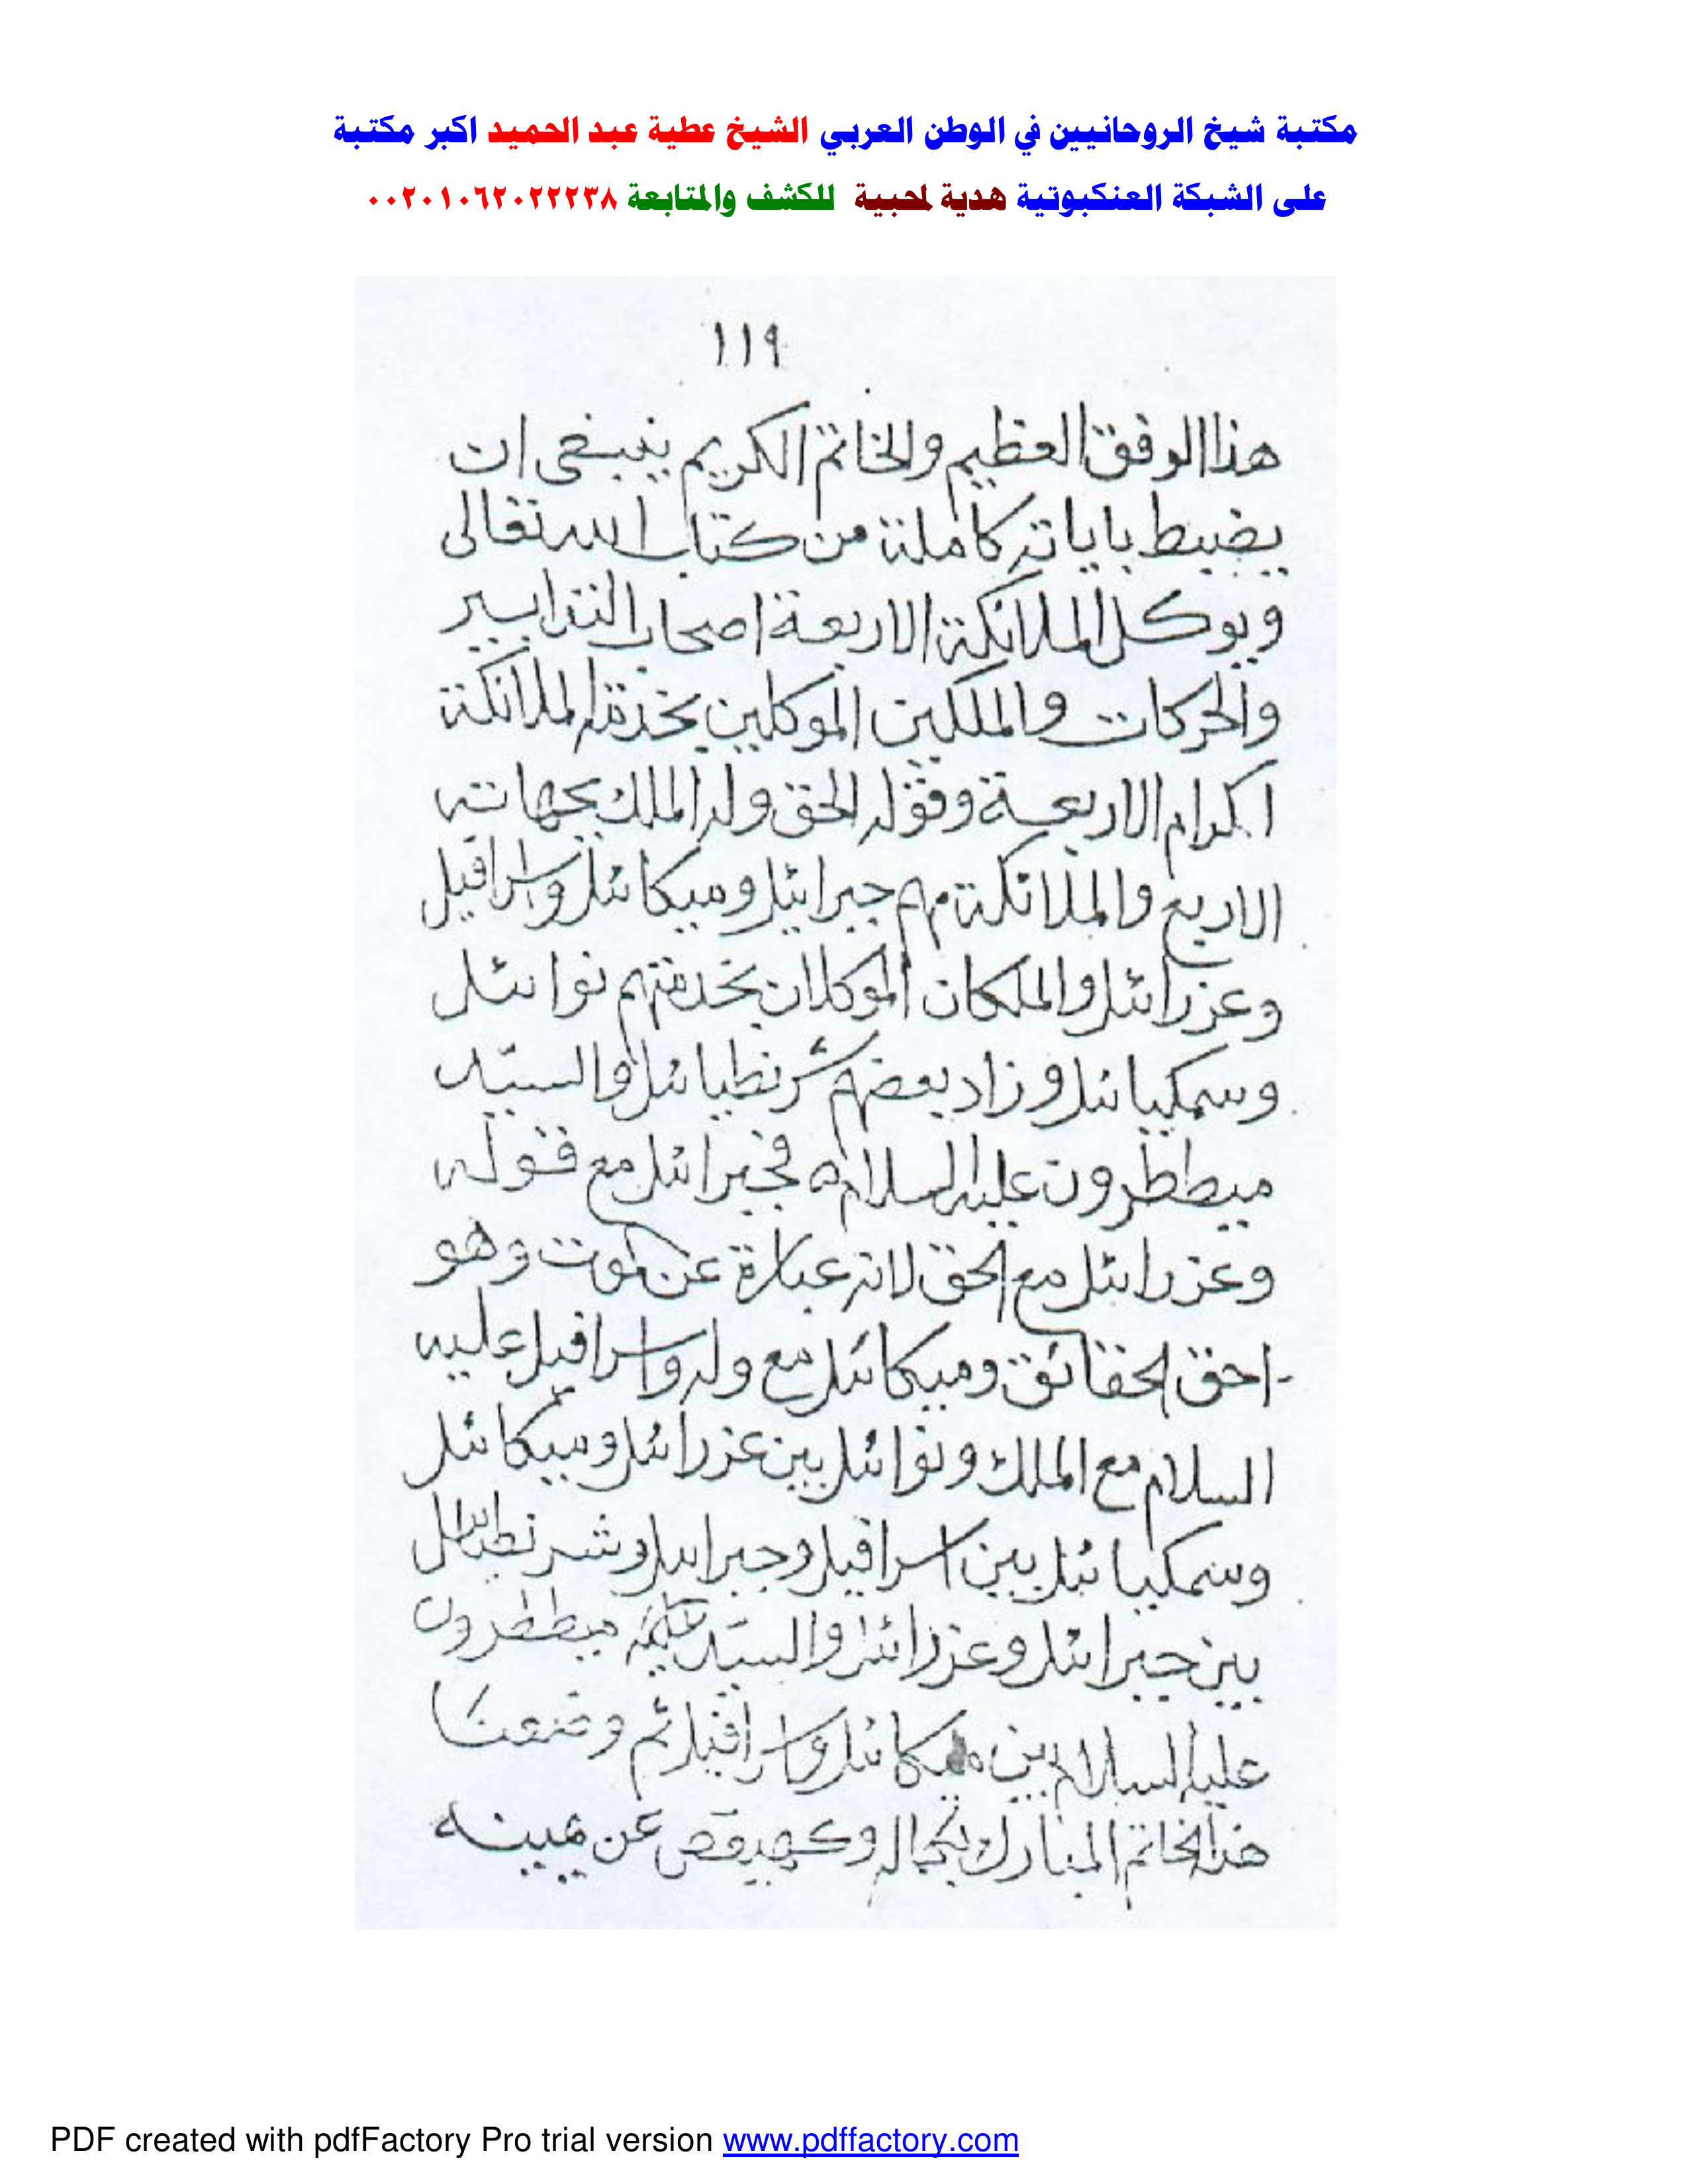 مكتبة شيخ الروحانيين في الوطن العربي الشيخ عطية عبد الحميد اكبر مكتبة
على الشبكة العنكبوتية هدية لمحبية للكشف والمتابعة ٠٠٢٠١٠٦٢٠٢٢٢٣٨
١١٩
هذا الوفق العظيم والخاتم الكريم ينبغى ان
يضبط باياته كاملة من كتاب الله تعالى
ويوكل الملائكة الاربعة اصحاب التدابير
والحركات والملكين الموكلين بخدمة الملائكة
اكرام الاربعة وقوله الحق وله الملك بجهاته
الاربع والملائكة هم جبرائيل وميكائيل واسرافيل
وعزرائيل والملكان الموكلان بخدمتهم نوائيل
وسمكيائيل وزاد بعضهم شرنطيائيل والسيد
ميططرون عليه السلام فجبرائيل مع قوله
وعزرائيل مع الحق لانه عبارة عن الموت وهو
احق الحقائق وميكائيل مع وله واسرافيل عليه
السلام مع الملك ونوائيل بين عزرائيل وميكائيل
وسمكيائيل بين اسرافيل وجبرائيل وشرنطيائيل
بين جبرائيل وعزرائيل والسيد ميططرون
عليه السلام بين ميكائيل واسرافيل ثم وضعنا
هذا الخاتم المبارك بكماله وكهيعص عن يمينه
PDF created with pdfFactory Pro trial version www.pdffactory.com